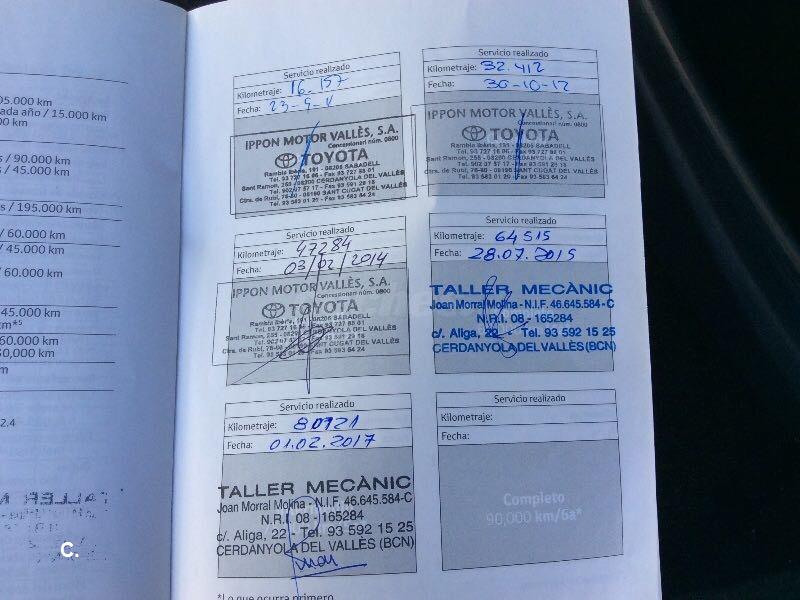 05.000 km
ada año / 15.000
00 km
s / 90.000 km
s / 45.000 km
s / 195.000 km
/ 60.000 km
/ 45.000 km
/ 60.000 km
45.000 km
km*5
60.000 km
30,000 km
m
2.4
C.
Servicio realizado
Kilometraje: 16.157
Fecha: 23-9-11
IPPON MOTOR VALLÈS, S.A.
Concesionari núm. 0800
TOYOTA
Rambla Ibèria, 191 - 08205 SABADELL
Tel. 93 727 16 96 - Fax 93 727 88 01
Sant Ramon, 255 - 08290 CERDANYOLA DEL VALLÈS
Tel. 902 07 57 17 - Fax 93 591 29 18
Ctra. de Rubí, 76-80 - 08190 SANT CUGAT DEL VALLÈS
Tel. 93 583 01 29 - Fax 93 583 64 24
Servicio realizado
Kilometraje: 32.412
Fecha: 30-10-12
IPPON MOTOR VALLÈS, S.A.
Concesionari núm. 0800
TOYOTA
Rambla Ibèria, 191 - 08205 SABADELL
Tel. 93 727 16 96 - Fax 93 727 88 01
Sant Ramon, 255 - 08290 CERDANYOLA DEL VALLÈS
Tel. 902 07 57 17 - Fax 93 591 29 18
Ctra. de Rubí, 76-80 - 08190 SANT CUGAT DEL VALLÈS
Tel. 93 583 01 29 - Fax 93 583 64 24
Servicio realizado
Kilometraje: 47284
Fecha: 03/02/2014
IPPON MOTOR VALLÈS, S.A.
Concesionari núm. 0800
TOYOTA
Rambla Ibèria, 191 - 08205 SABADELL
Tel. 93 727 16 96 - Fax 93 727 88 01
Sant Ramon, 255 - 08290 CERDANYOLA DEL VALLÈS
Tel. 902 07 57 17 - Fax 93 591 29 18
Ctra. de Rubí, 76-80 - 08190 SANT CUGAT DEL VALLÈS
Tel. 93 583 01 29 - Fax 93 583 64 24
Servicio realizado
Kilometraje: 64515
Fecha: 28.07.2015
TALLER MECÀNIC
Joan Morral Molina - N.I.F. 46.645.584-C
N.R.I. 08 - 165284
c/. Aliga, 22 - Tel. 93 592 15 25
CERDANYOLA DEL VALLÈS (BCN)
Servicio realizado
Kilometraje: 80921
Fecha: 01.02.2017
TALLER MECÀNIC
Joan Morral Molina - N.I.F. 46.645.584-C
N.R.I. 08 - 165284
c/. Aliga, 22 - Tel. 93 592 15 25
CERDANYOLA DEL VALLÈS (BCN)
Servicio realizado
Kilometraje:
Fecha:
Completo
90,000 km/6a*
*Lo que ocurra primero